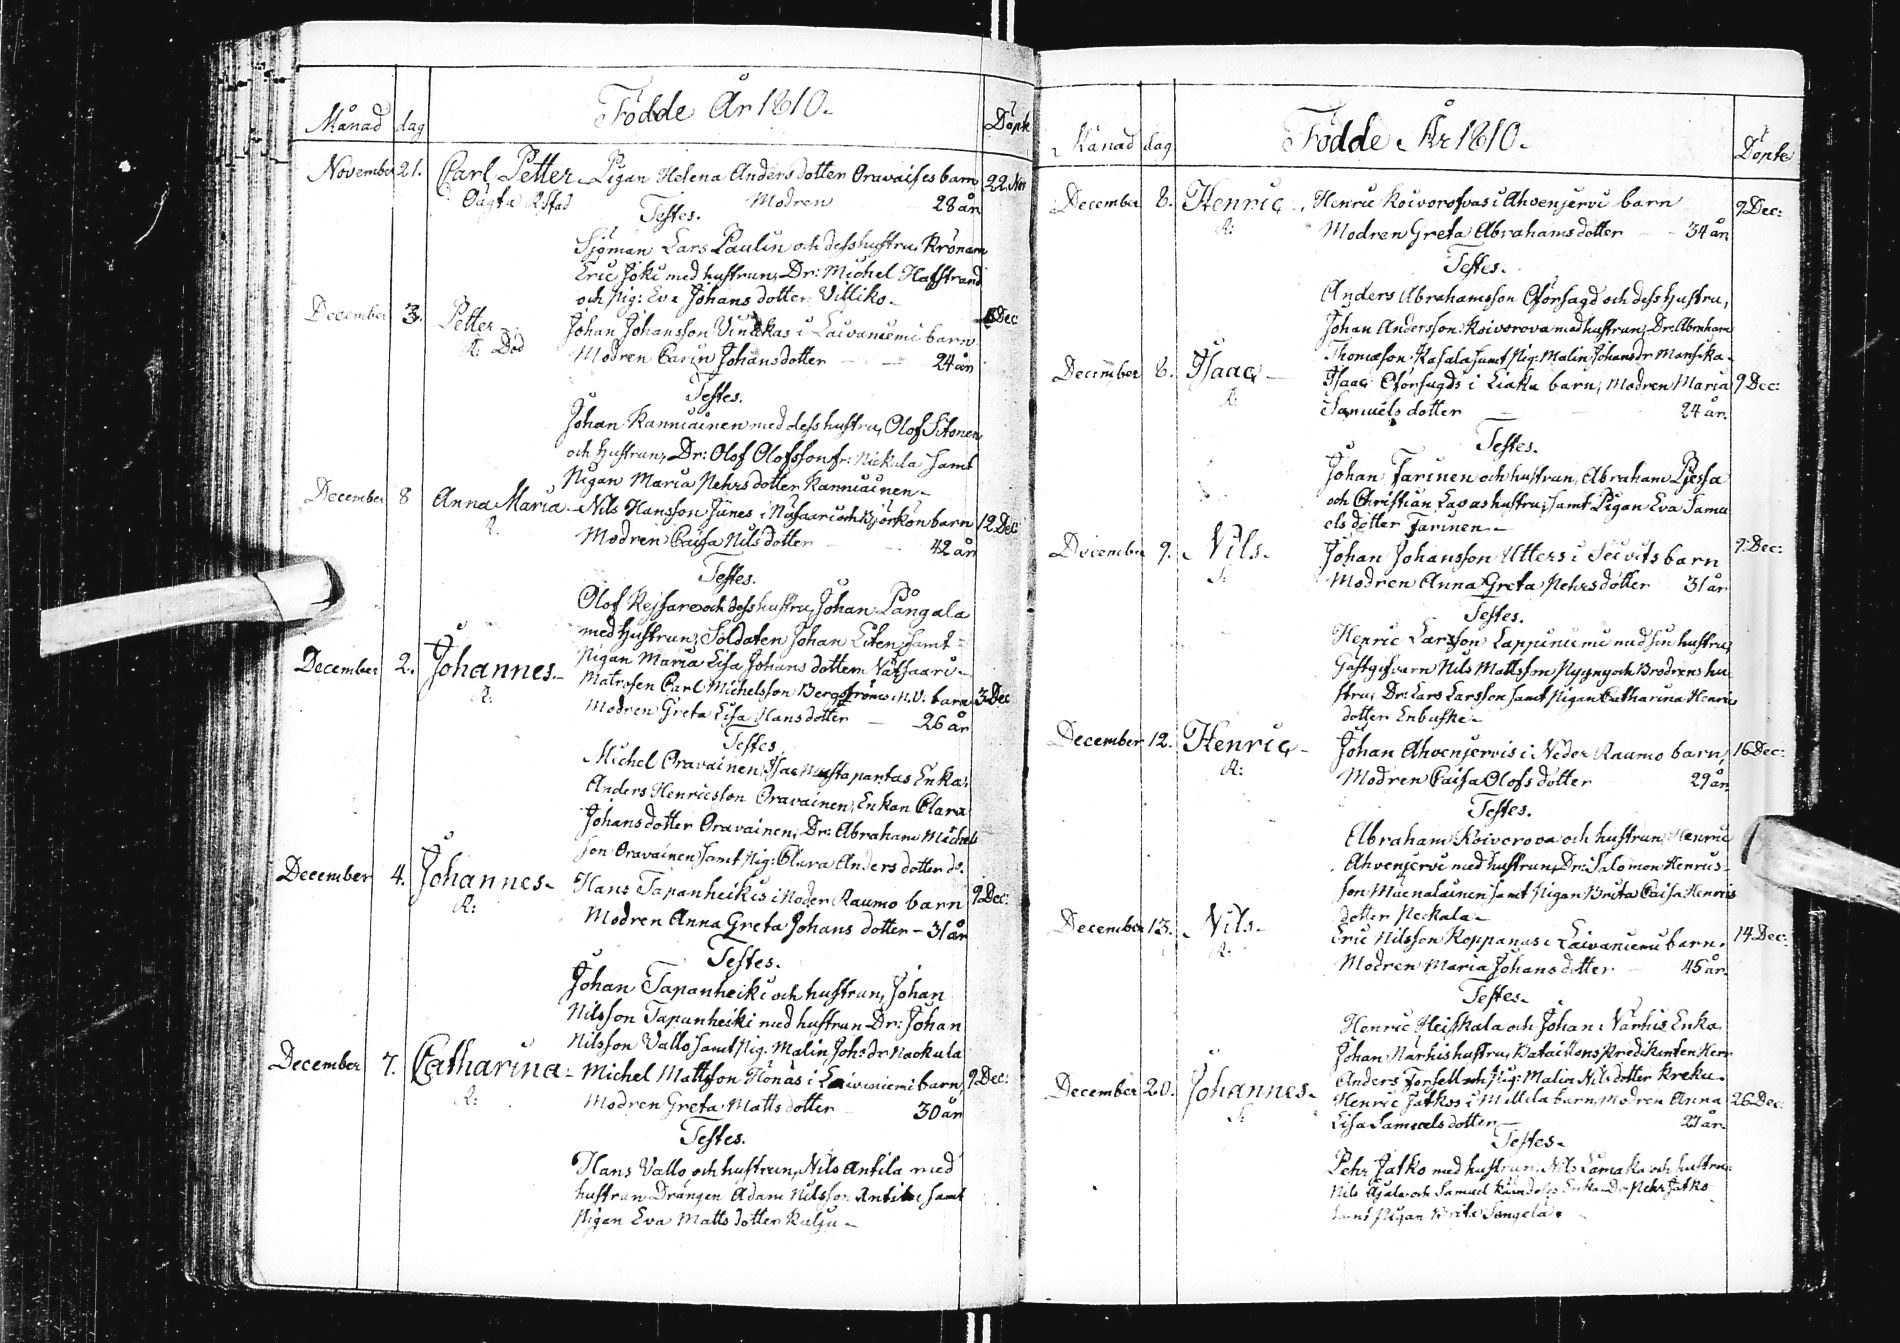 Födde År 1810.
Månad dag Döpte
November 21. Carl Petter. Pigan Helena Anders dotter Oravaises barn 22 Nov
Oägta Modren 28 år
Testes.
Sjöman Lars Paulin och dess hustru, Kronam
Eric Joki med hustrun, Dr: Michel Hafstrand
och Pig: Eva Johans dotter Vittiko.
December 3. Petter. Johan Johansson i Laivaniemi barn Dec
R: Död Modren Carin Johansdotter 24 år
Testes.
Johan Kanniainen med dess hustru, Olof Sitonen
och hustrun, Dr: Olof Olofsson fr: Nickula samt
Pigan Maria Pehrs dotter Kanniainen.
December 8 Anna Maria. Nils Hansson Junes i och Björkön barn 12 Dec
R. Modren Caisa Nils dotter 42 år
Testes.
Olof och dess hustru, Johan Pångala
med hustrun, Soldaten Johan Liten, samt
Pigan Maria Lisa Johans dotter
December 2. Johannes. Matrosen Carl Michelsson Bergströms i N.V. barn 3 Dec
R: Modren Greta Lisa Hans dotter 26 år
Testes
Michel Oravainen, Isac Enka,
Anders Henricsson Oravainen, Enkan Clara
Johansdotter Oravainen, Dr: Abraham Michels
son Oravainen samt Pig: Clara Anders dotter do.
December 4. Johannes. Hans Tapanheikis i Neder Raumo barn 9 Dec:
R: Modren Anna Greta Johans dotter 31 år
Testes.
Johan Tapanheiki och hustrun, Johan
Nilsson Tapanheiki med hustrun Dr: Johan
Nilsson Vallo samt Pig. Malin Johs dr
December 7. Catharina. Michel Mattsson Hönäs i Laivaniemi barn, 9 Dec:
R: Modren Greta Matts dotter 30 år
Testes.
Hans Vallo och hustrun, Nils Antila med
hustrun Drängen Adam Nilsson Antila samt
Pigan Eva Matts dotter
Födde År 1810.
Månad dag Döpte
December 8. Henric. Henric Koivorovas i Ahvenjervi barn 9 Dec:
R: Modren Greta Abrahams dotter 34 år
Testes.
Anders Abrahamsson Oförsagd och dess hustru,
Johan Andersson Koivorova med hustrun, Dr: Abraham
Thomasson Kasala samt Pig. Malin Johans dr Mansika.
December 8. Isaac Isaac Oförsagds i Liaka barn, Modren Maria 9 Dec:
R: Samuels dotter 24 år.
Testes.
Johan Farinen och hustrun, Abraham
och Christian Lavas hustru, samt Pigan Eva Samu
els dotter Farinen.
December 9. Nils. Johan Johansson Utters i Seivits barn 9 Dec:
Modren Anna Greta Pehrs dotter 31 år
Testes.
Henric Larsson Lappiniemi med sin hustru,
Gästgifvarn Nils Mattsson och Brodrens hu
stru, Dr: Lars Larsson samt Pigan Catharina Henrics
dotter Enbuske.
December 12. Henric. Johan Ahvenjervis i Neder Raumo barn, 16 Dec:
R: Modren Caisa Olofs dotter 29 år
Testes.
Abraham Koivorova och hustrun, Henric
Ahvenjervi med hustrun, Dr: Salomon Henrics-
son samt Pigan Brita Caisa Henrics
dotter
December 13. Nils. Eric Nilsson Koppanas i Laivaniemi barn. 14 Dec:
R: Modren Maria Johans dotter 45 år.
Testes.
Henric Heiskala och Johan Närhis Enka
Johan Närhis hustru, Bataillons Predikanten Herr
Anders Forsell och Pig: Malin Nils dotter Kreku.
December 20. Johannes. Henric Jatkos i barn, Modren Anna 26 Dec:
Lisa Samuels dotter 27 år.
Testes.
Pehr Jatko med hustrun, Nils och hustrun
Nils och Samuel Enka Dr: Pehr Jatko
samt Pigan Brita